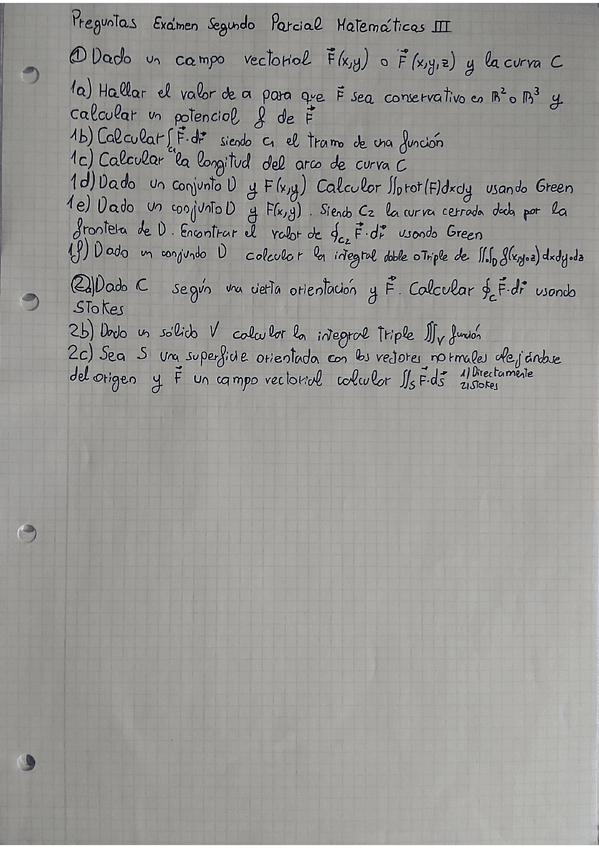 Preguntas Exámen Segundo Parcial Matemáticas III
① Dado un campo vectorial F⃗(x,y) o F⃗(x,y,z) y la curva C
1a) Hallar el valor de a para que F⃗ sea conservativo en ℝ² o ℝ³ y
calcular un potencial f de F⃗
1b) Calcular ∫_{C₁} F⃗·dr⃗ siendo C₁ el tramo de una función
1c) Calcular la longitud del arco de curva C
1d) Dado un conjunto D y F(x,y) Calcular ∬_D rot(F)dxdy usando Green
1e) Dado un conjunto D y F(x,y). Siendo C2 la curva cerrada dada por la
frontera de D. Encontrar el valor de ∮_{C2} F⃗·dr⃗ usando Green
1f) Dado un conjundo D calcular la integral doble o Triple de ∬∫_D f(x,y,z)dxdydz
②a) Dado C según una cierta orientación y F⃗. Calcular ∮_C F⃗·dr⃗ usando
Stokes
2b) Dado un sólido V calcular la integral Triple ∭_V función
2c) Sea S una superficie orientada con los vectores normales alejándose
del origen y F⃗ un campo vectorial calcular ∬_S F⃗·ds⃗ 1) Directamente
2) Stokes